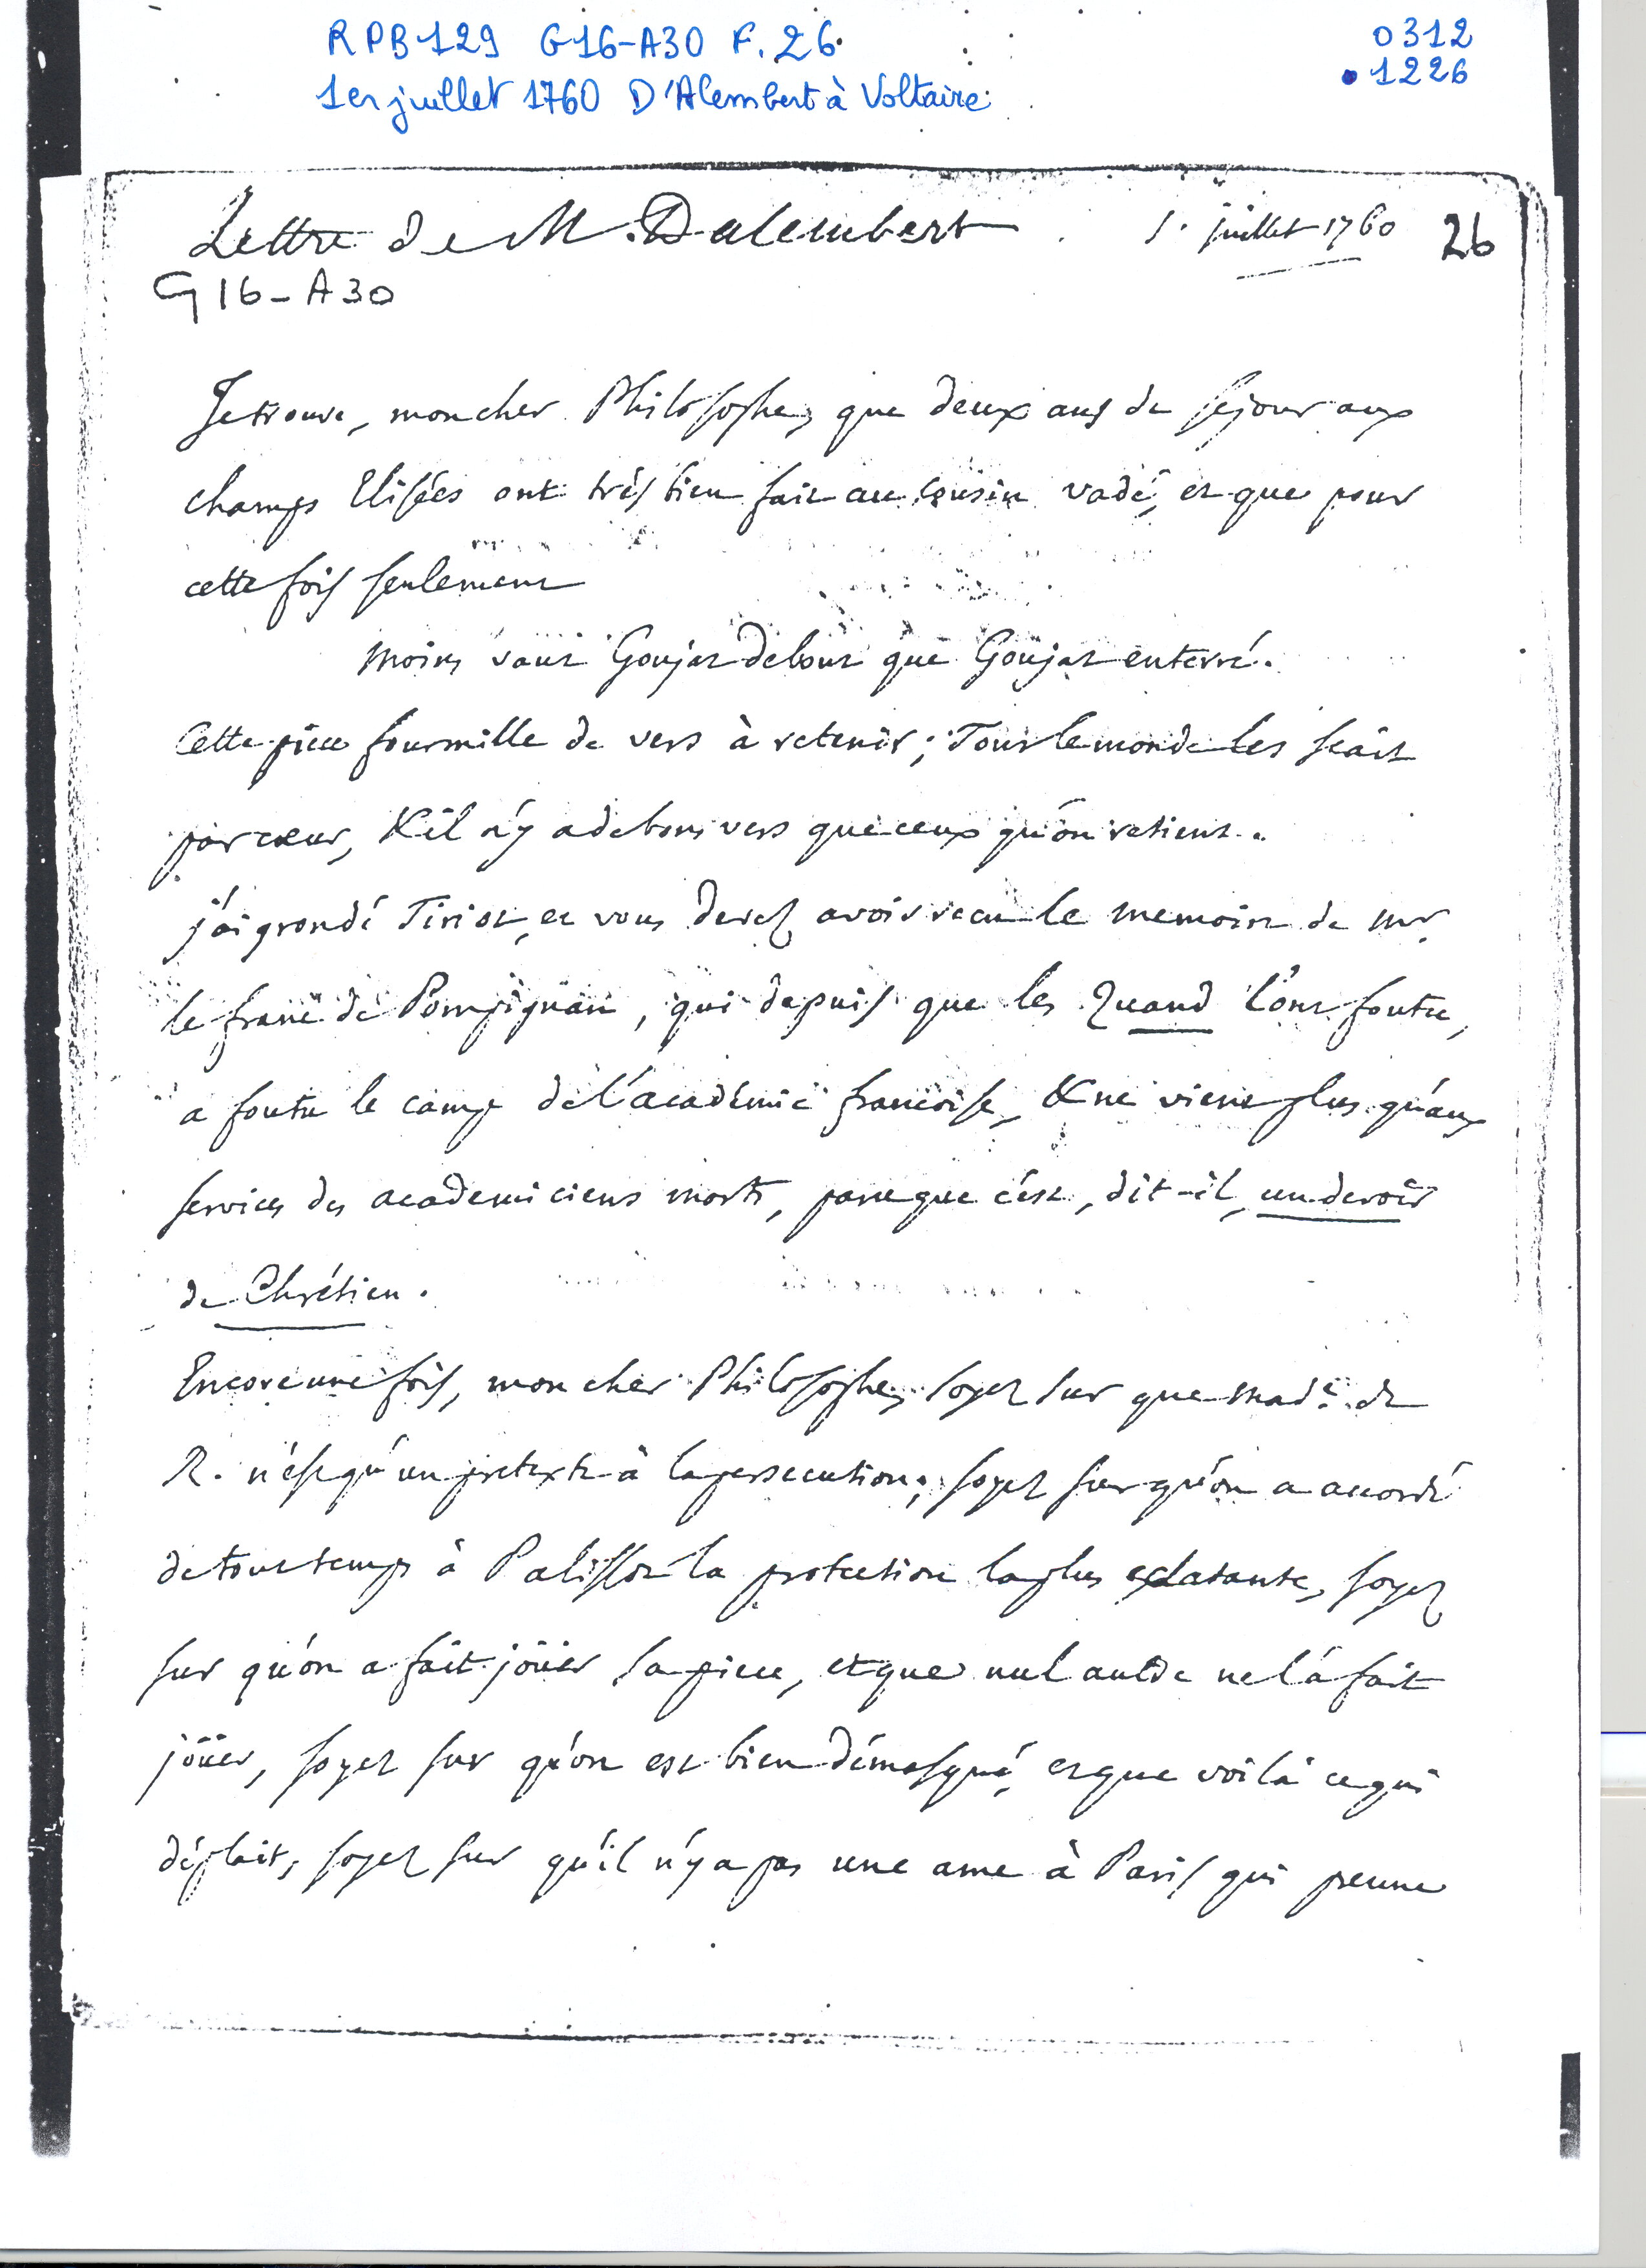 RPB 129 G16-A30 F. 26
0312
1er juillet 1760 D'Alembert à Voltaire
1226
Lettre de M. Dalembert 1. juillet 1760 26
G16-A30
Je trouve, mon cher Philosophe, que deux ans de sejour aux
champs Elisées ont très bien fait au cousin vadé, et que pour
cette fois seulement
Moins vaut Goujat debout que Goujat enterré.
Cette piece fourmille de vers à retenir; Tout le monde les scait
par cœur, & il n'y a de bons vers que ceux qu'on retient.
j'ai grondé Tiriot, et vous devez avoir recu le memoire de Mr
le franc de Pompignan, qui depuis que les Quand l'ont foutu,
a foutu le camp de l'académie francoise, & ne vient plus qu'aux
services des academiciens morts, parceque c'est, dit-il, un devoir
de Chrétien.
Encore une fois, mon cher Philosophe, soyez sur que Made. de
R. n'est qu'un pretexte à la persecution; soyez sur qu'on a accordé
de tout temps à Palissot la protection la plus eclatante, soyez
sur qu'on a fait joüer sa piece, et que nul autre ne l'a fait
joüer, soyez sur qu'on est bien démasqué, et que voilà ce qui
déplait; soyez sur qu'il n'y a pas une ame à Paris qui prenne